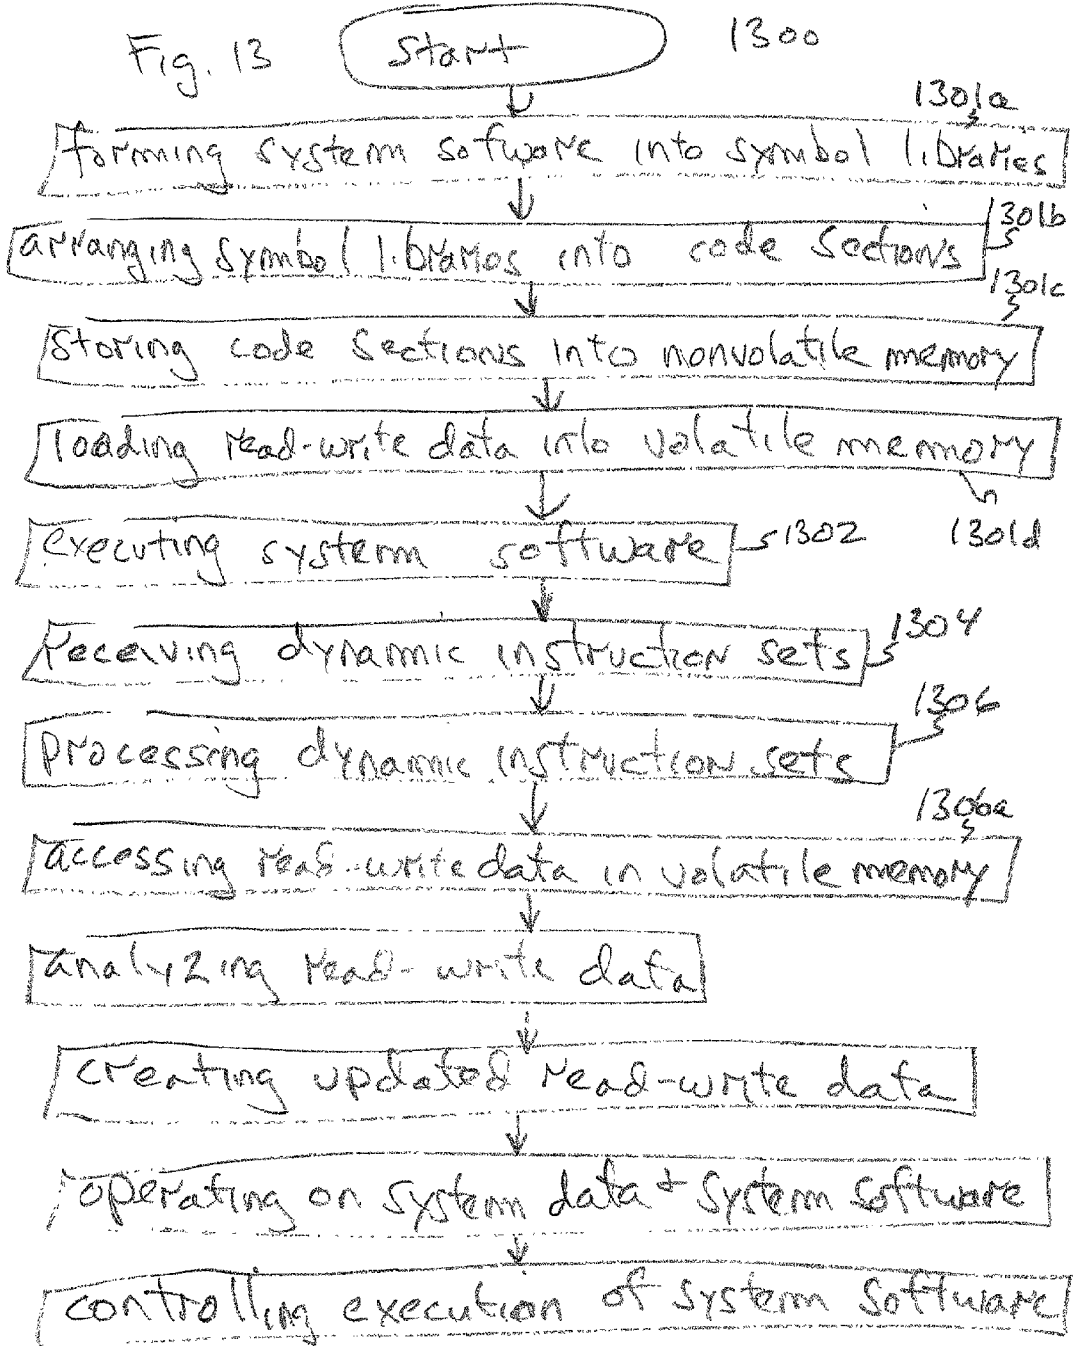 Fig. 13 Start 1300
1301a
forming system sofware into symbol libraries
1301b
arranging symbol libraries into code sections
1301c
storing code sections into nonvolatile memory
loading read-write data into volatile memory
1301d
executing system software 1302
1304
receiving dynamic instruction sets
1306
processing dynamic instruction sets
1306a
accessing read-write data in volatile memory
analyzing read-write data
creating updated read-write data
operating on system data + system software
controlling execution of system software